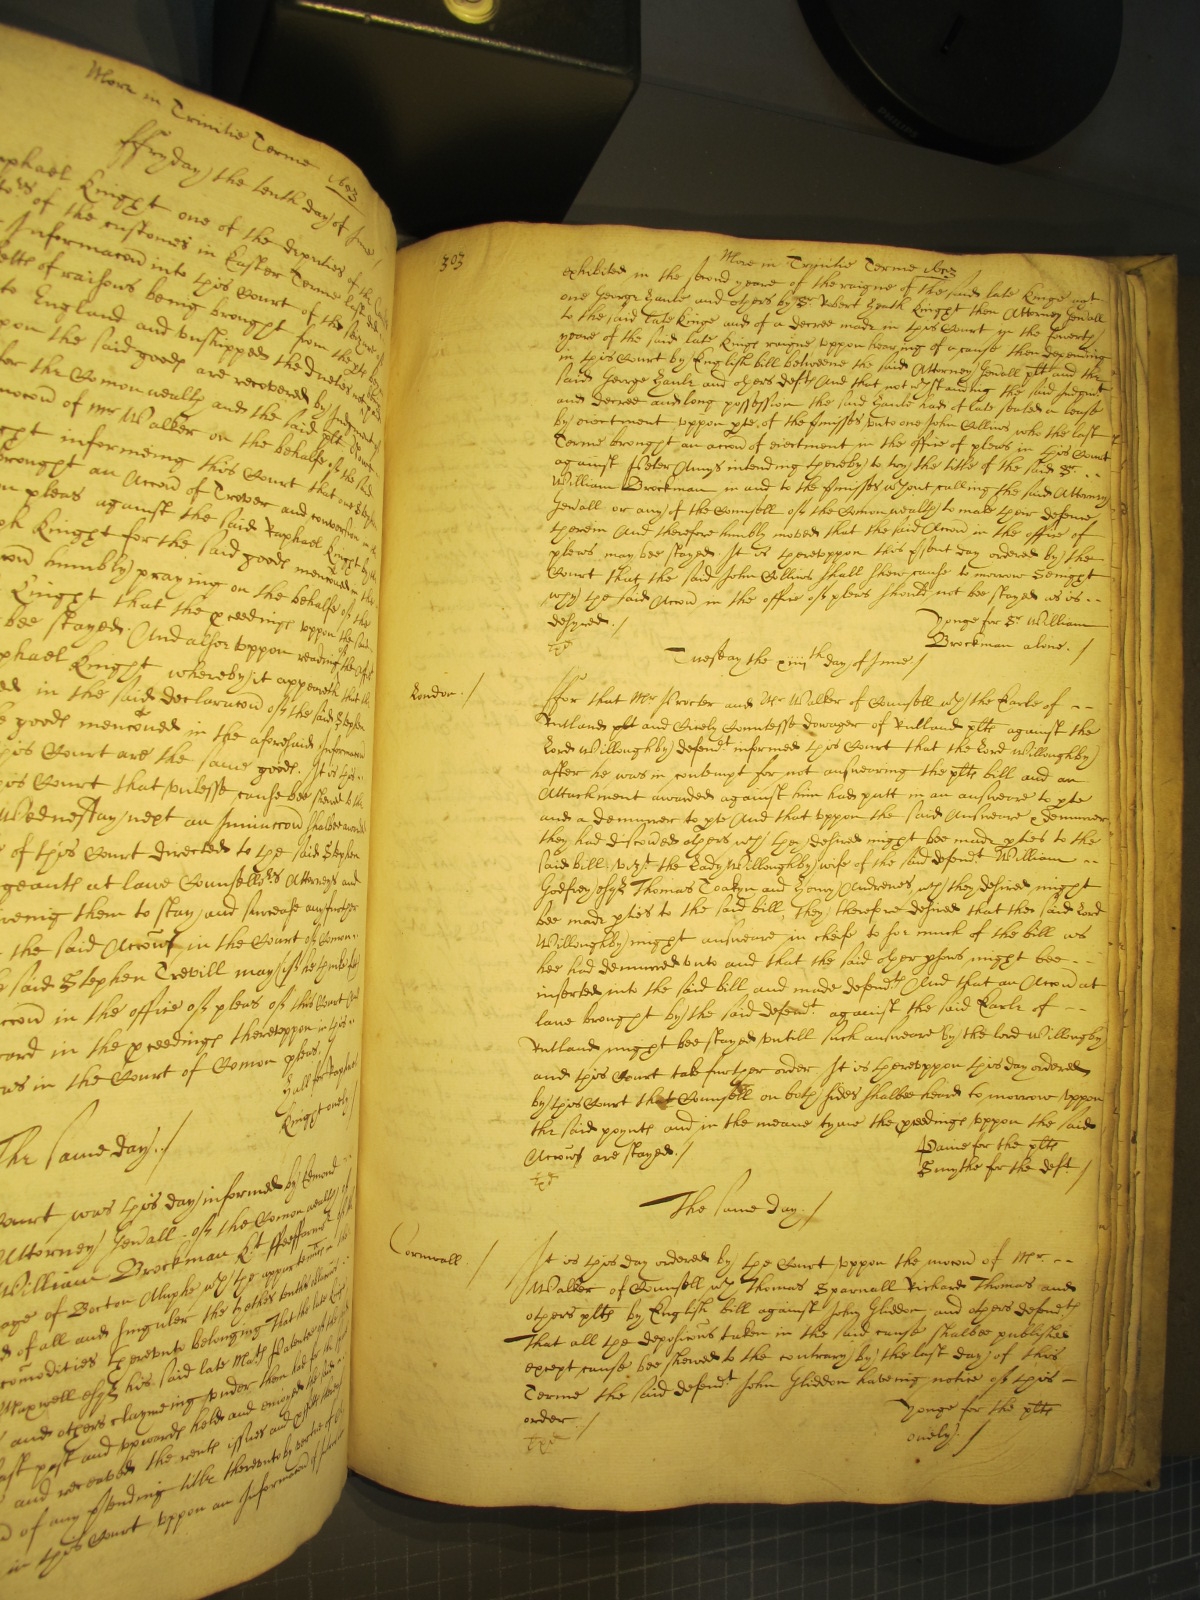 More in Trinitie Terme 1653
ffryday the tenth day of June /
Raphael Knight one of the deputies of the
of the customes in Easter Terme last
Informacon into this Court of the seizure of
of raisons being brought from the
to England and unshipped the duties not
upon the said goods are recovered by Judgment
for the Comon wealth and the said plt
mocon of Mr Walker on the behalfe of the said
Knight informeing this Court that one Stephen
brought an Accon of Trover and conversion in the
pleas against the said Raphael Knight
Knight for the said goods menconed in the
humbly praying on the behalfe of the
Knight that the pceedings uppon the said
bee stayed. And alsoe uppon reading the
Raphael Knight whereby it appeareth that the
in the said declaracon of the said Stephen
goods menconed in the aforesaid Informacon
this Court are the same goods. It is this
this Court that unlesse cause bee shewed to the
Wednesday next an Iniunccon shalbee awarded
of this Court directed to the said Stephen
Sergeants at lawe Counsellors Attorneys and
them to stay and surcease any further
the said Accons in the Court of Comon
said Stephen Trevill may if he
Accon in the office of pleas of this Court
in the pceedings thereuppon in this
in the Court of Comon pleas.
Hall for Raphael
Knight onely /
The same day. /
Court was this day informed by Edmond
Attorney Genall of the Comon wealth
William Brockman Kt
of Borton Aluph wth the appurtenncs
of all and singuler the
comodities thereunto belonging That the late King
Maxwell esqr his said late Mats Patentee
and others claymeing under them
last past and upwards held and enioyed the said
and receaved the rents issues and pffitts
of any ptending title thereunto by vertue of
in this Court uppon an Informacon
303
More in Trinitie Terme 1653
exhibited in the second yeare of the raigne of the said late Kinge agt
one George Haule and others by Sr Robert Heath Knight then Attorney Genall
to the said late Kinge and of a decree made in this Court in the fowerth
yeare of the said late Kings raigne uppon hearing of a cause then depending
in this Court by English bill betweene the said Attorney Genall plt and the
said George Haule and others defts And that notwthstanding the said Judgmt
and decree and long possession the said Haule had of late sealed a lease
by eiectment uppon pte of the pmisses unto one John Collins who the last
Terme brought an accon of eiectment in the office of pleas in this Court
against Peter Amys intending thereby to try the title of the said Sr - -
William Brockman in and to the pmisses wthout calling the said Attorney
Genall or any of the Counsell of the Comon wealth to make their defence
therein And therefore humbly moved that the said Accon in the office of
pleas may bee stayed. It is thereuppon this psent day ordered by the
Court that the said John Collins shall shew cause to morrow Senight
why the said Accon in the office of pleas should not bee stayed as is - -
desyred. /
Yonge for Sr William
Brockman alone. /
Tuesday the xiiiith day of June /
London. /
ffor that Mr Procter and Mr Walker of Counsell wth the Earle of - -
Rutland plt and Cicely Countesse dowager of Rutland plts against the
Lord Willoughby defendt informed this Court that the Lord Willoughby
after he was in contempt for not answearing the plts bill and an
Attachment awarded against him had putt in an answeare to pte
and a demurrer to pte And that uppon the said Answeare & demurrer
they had discovered others wch they desired might bee made pties to the
said bill vizt the Lady Willoughby wife of the said defendt William - -
Godfrey esqr Thomas Toakyn and Henry Andrewes, wch they desired might
bee made pties to the said bill, They therefore desired that the said Lord
Willoughby might answeare in cheife to soe much of the bill as
hee had demurred unto and that the said other psons might bee - -
inserted into the said bill and made defendts And that an Accon at
lawe brought by the said defendt against the said Earle of - -
Rutland might bee stayed untill such answeare by the lord Willoughby
and this Court take further order It is thereuppon this day ordered
by this Court that Counsell on both sides shalbee heard to morrow uppon
the said poynts and in the meane tyme the pceedings uppon the said
Accons are stayed. /
Payne for the plts
Smythe for the deft. /
The same day. /
Cornwall. /
It is this day ordered by the Court uppon the mocon of Mr - -
Walker of Counsell wth Thomas Sparnall Richard Thomas and
others plts by English bill against John Gliddon and others defendts
That all the deposicons taken in the said cause shalbee published
except cause bee shewed to the contrary by the last day of this
Terme the said defendt John Gliddon haveing notice of this -
order. /
Yonge for the plts
onely. /